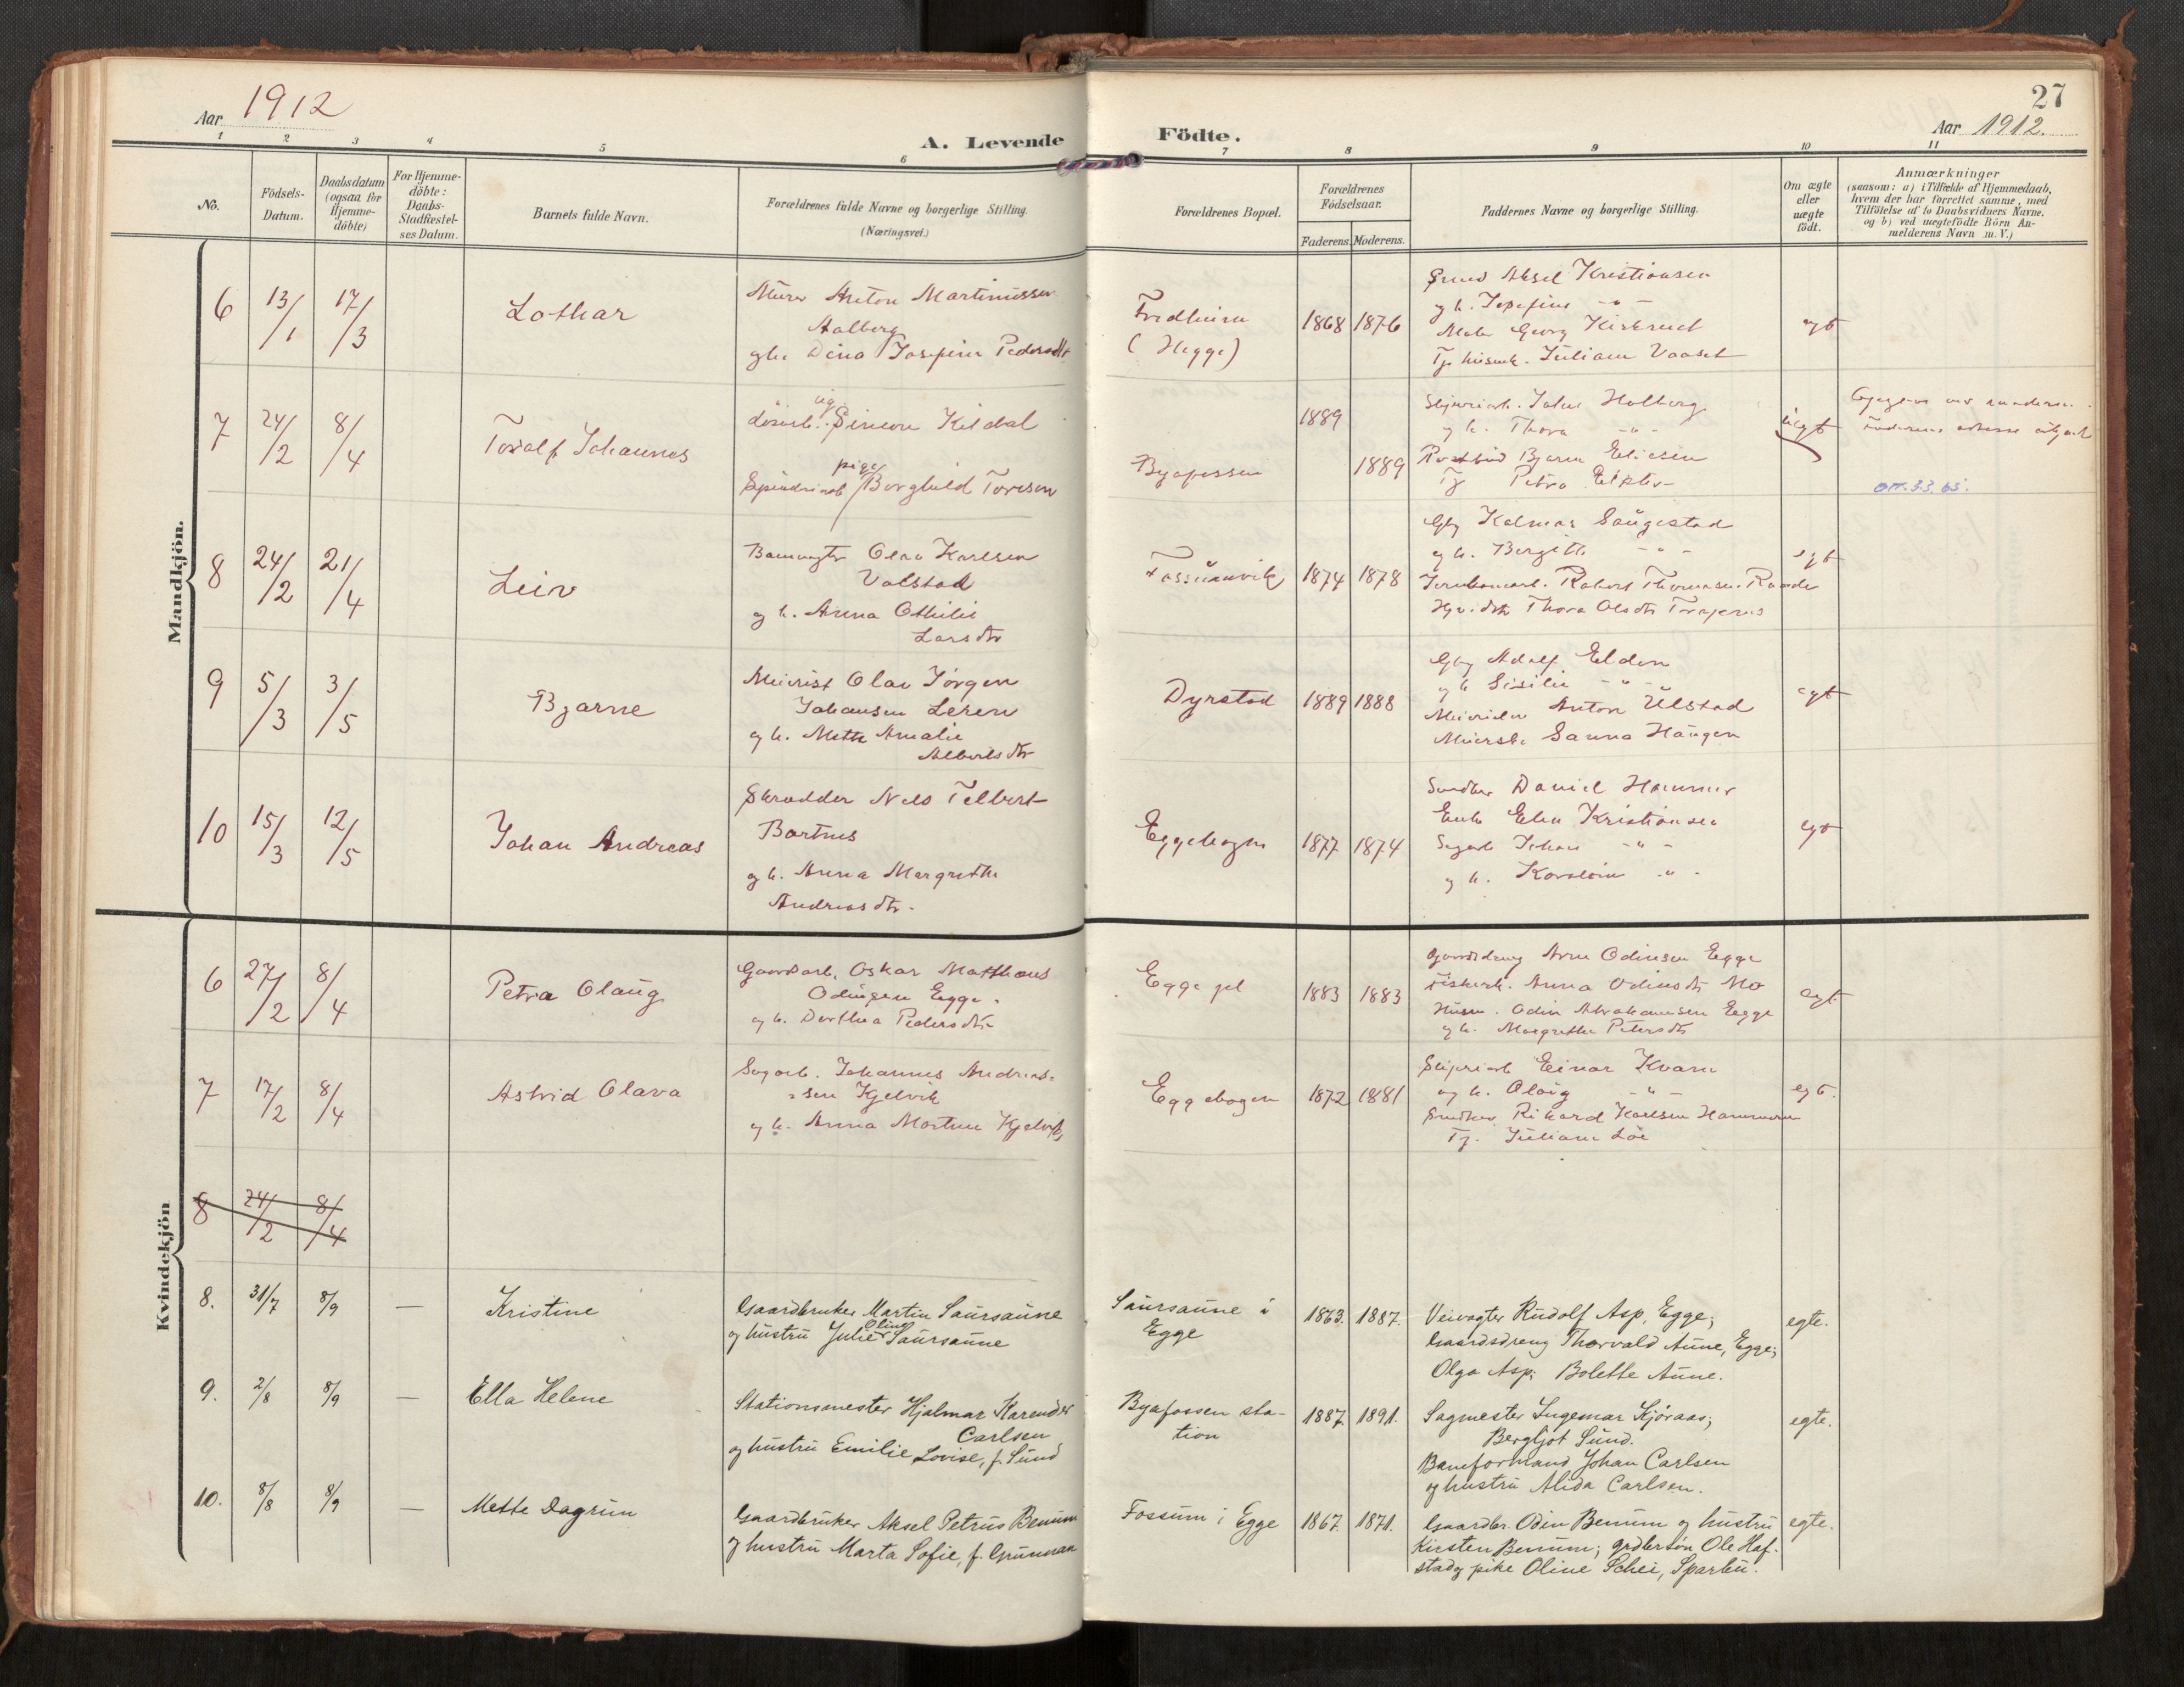 Aar 1912
A. Levende
1 2 3 4 5 6
No.
Födsels-
Datum.
Daabsdatum
(ogsaa for
Hjemme-
döbte)
For Hjemme-
döbte:
Daabs-
Stadfæstel-
ses Datum.
Barnets fulde Navn.
Forældrenes fulde Navne og borgerlige Stilling.
(Næringsvei.)
Födte.
27
Aar 1912.
7 8 9 10 11
Forældrenes Bopæl.
Forældrenes
Födselsaar.
Faderens. Moderens.
Faddernes Navne og borgerlige Stilling.
Om ægte
eller
uægte
födt.
Anmærkninger
(saasom: a) i Tilfælde af Hjemmedaab,
hvem der har forrettet samme, med
Tilföielse af to Daabsvidners Navne.
og b) ved uægtefödte Börn An-
melderens Navn m. V.)
Mandkjön.
6 13/1 17/3 Lothar
Murer Anton Martinussen
Aalberg
Dina
Fredheim
(Hegge)
1868 1876
Aksel Kristiansen
Georg
Juliane Vaaset
egt
7 24/2 8/4 Toralf Johannes
ug.
Simon Kildal
pige
Borghild Toresen
Byafossen
1889
1889
Holberg
og h. Thora -"-
Bjarne
Tj Petra
uegt
8 24/2 21/4 Leiv
Banevogter Olav Karlsen
Valstad
og h. Anna Othilie
Larsdtr
1874 1878
Gbr Kalmar Saugestad
og h. Bergitte -"-
Robert Thomassen
Thora Olsdtr
egt
9 5/3 3/5 Bjarne
Meierist Olav Jørgen
Johansen Leren
og h. Mette Amalie
Albertsdtr
Dyrstad
1889 1888
Gbr Adolf Elden
og h Sisilie -"-
Anton Ulstad
Sanna Haugen
egt
10 15/3 12/5 Johan Andreas
Skrædder Nels Telbert
Bartnes
og h. Anna Margrethe
Andreasdtr.
Eggebogen
1877 1874
Smedker Daniel Hammer
Enke Elen Kristiansen
Sagarb Johan -"-
og h. -"-
egt
Kvindekjön
6 27/2 8/4 Petra Olaug
Gaardarb. Oskar Matthæus
Odinsen Egge.
og h. Dorthea Pedersdtr
Egge
1883 1883
Gaardsdreng Arne Odinsen Egge
Anna Odinsdtr Mo
Odin Abrahamsen Egge
og h. Margrethe Petersdtr
egt
7 17/2 8/4 Astrid Olava
Sagarb. Johannes Andreas-
sen Kjelvik
og h. Anna Martine Kjelvik
Eggebogen
1872 1881
Einar Kvam
og h. Olaug -"-
Smedker Rikard Karlsen Hammeren
Tj. Juliane Løe
egt.
8 24/2 8/4
8. 31/7 8/9 — Kristine
Gaardbruker Martin Saursaune
Oline
og hustru Julie Saursaune
Saursaune i
Egge
1863. 1887.
Veivogter Rudolf Asp, Egge;
Gaardsdreng Thorvald Aune, Egge;
Olga Asp; Bolette Aune.
egte.
9. 2/8 8/9 — Ella Helene
Stationsmester Hjalmar Karender
Carlsen
og hustru Emilie Lovise, f. Sund
Byafossen sta-
tion
1887. 1891.
Sagmester Ingemar Kjøraas;
Bergljot Sund.
Baneformand Johan Carlsen
og hustru Alida Carlsen.
egte.
10. 8/8 8/9 — Mette Dagrun
Gaardbruker Aksel Petrus Benum
og hustru Marta Sofie, f. Grunnan
Fossum i Egge
1867. 1871.
Gaardbr. Odin Benum og hustru
Kirsten Benum; grdbrsøn Ole Haf-
stad og pike Oline Schei, Sparbu.
egte.